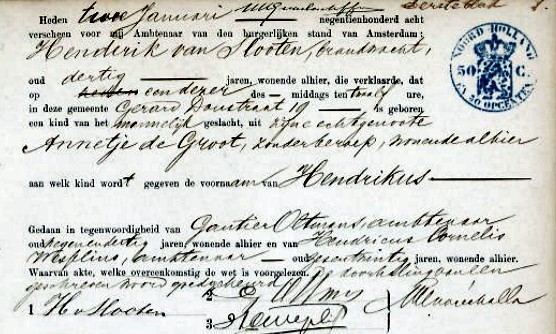 Heden twee Januari negentienhonderd acht
verscheen voor mij Ambtenaar van den burgerlijken stand van Amsterdam:
Henderik van Slooten, brandwacht,
oud dertig jaren, wonende alhier, die verklaarde, dat
op heden een dezer des middags ten twaalf ure,
in deze gemeente Gerard Doustraat 19 is geboren
een kind van het mannelijk geslacht, uit zijne echtgenoote
Annetje de Groot, zonder beroep, wonende alhier
aan welk kind wordt gegeven de voornaam van Hendrikus
Gedaan in tegenwoordigheid van Gautier Oltmans, ambtenaar
oud negenendertig jaren, wonende alhier en van Hendricus Cornelis
Wesplins, ambtenaar oud jaren, wonende alhier.
Waarvan akte, welke overeenkomstig de wet is voorgelezen. De doorhaling van een
geschreven woord goedgekeurd
1 H v Slooten
2
3
NOORD HOLLAND
50 C.
EN 20 OPCENTEN